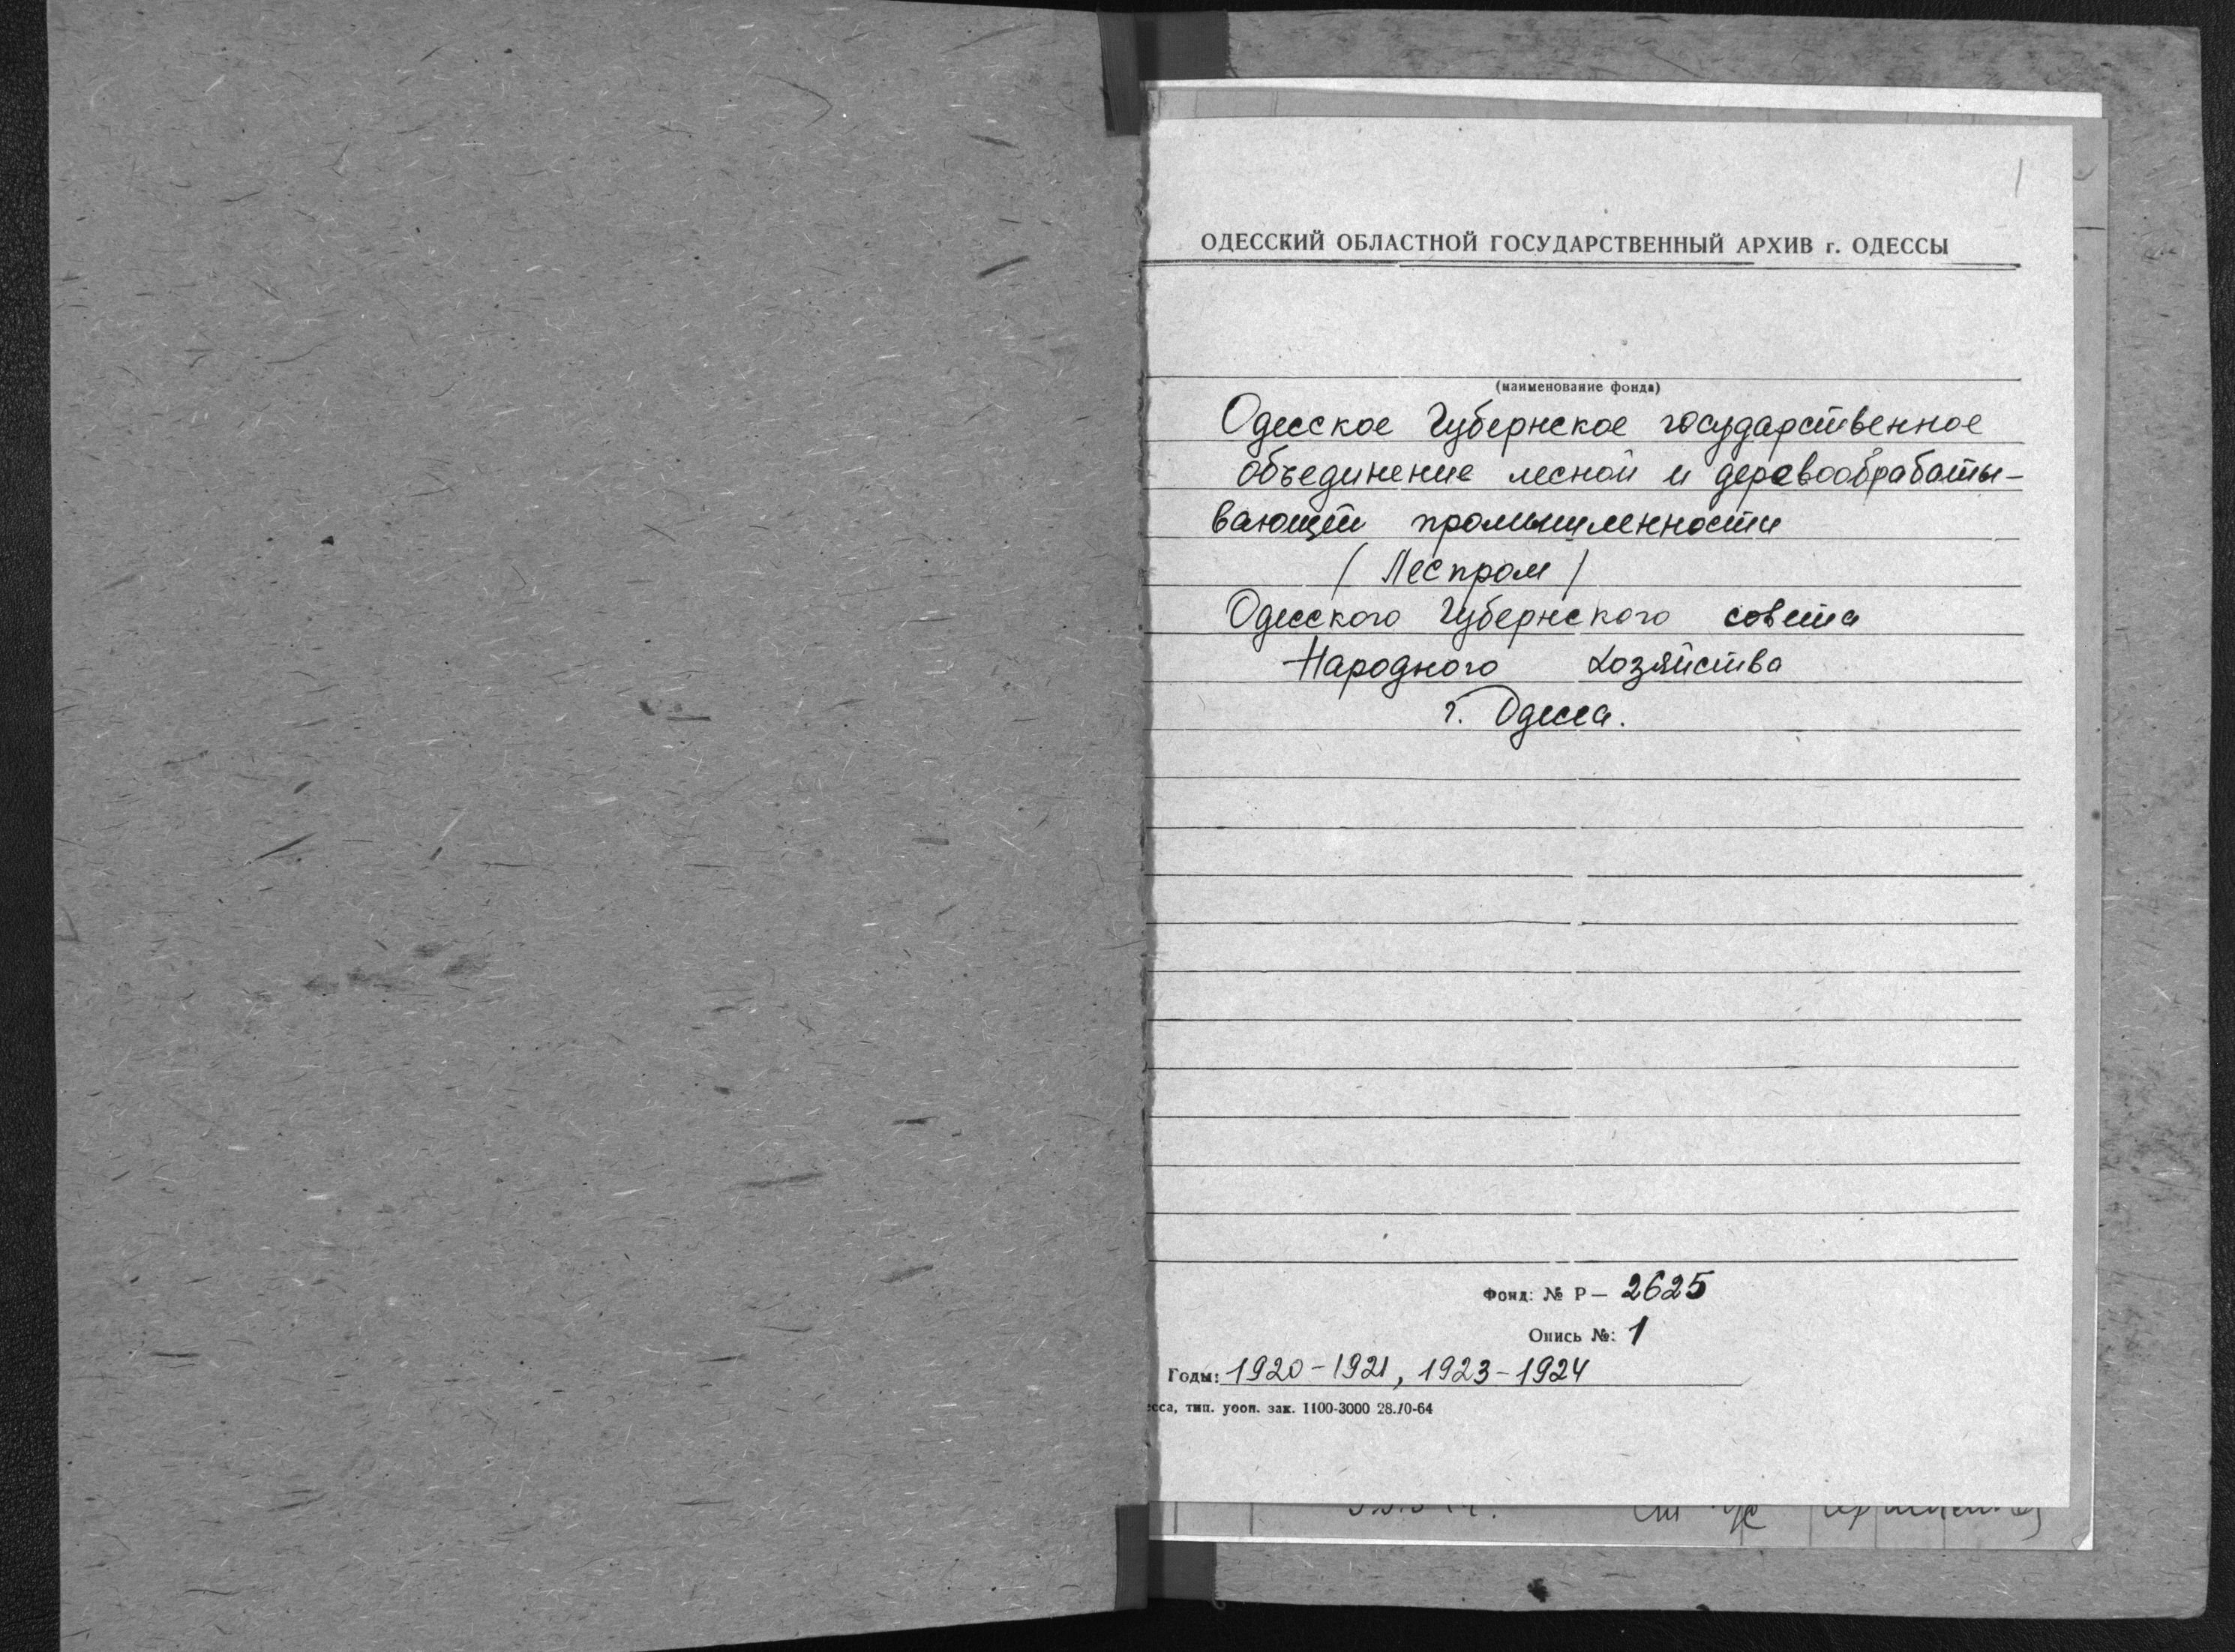 1
ОДЕССКИЙ ОБЛАСТНОЙ ГОСУДАРСТВЕННЫЙ АРХИВ г. ОДЕССЫ
(наименование фонда)
Одесское Губернское государственное
объединение лесной и деревообрабаты-
вающей промышленности
/ Леспром /
Одесского Губернского совета
Народного Хозяйства
г. Одесса.
Фонд: № Р— 2625
Опись №: 1
Годы: 1920-1921, 1923-1924
есса, тип. уооп. зак. 1100-3000 28.10-64